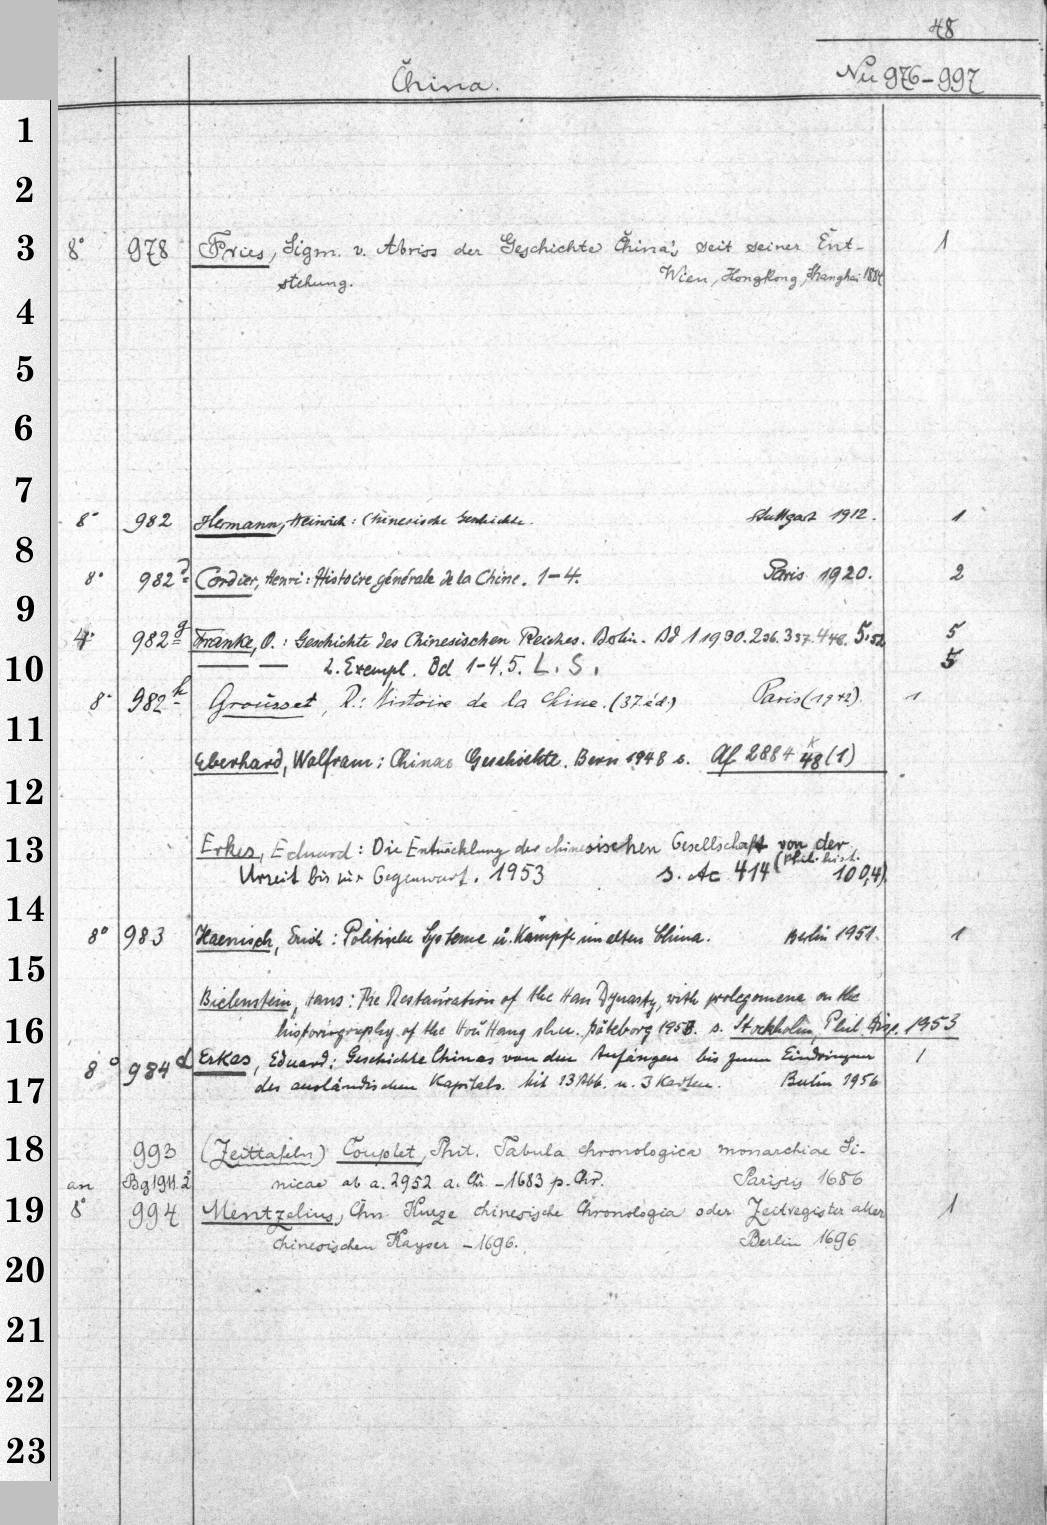 48
China. Nu 976-997
1
2
3 8° 978 Fries, Sigm. v. Abriss der Geschichte China's seit seiner Ent- 1
stehung. Wien, Hongkong, Shanghai 1884
4
5
6
7
8° 982 Hermann, Heinrich: Chinesische Geschichte. Stuttgart 1912. 1
8
8° 982d Cordier, Henri: Histoire générale de la Chine. 1-4. Paris 1920. 2
9
4° 982g Franke, O.: Geschichte des Chinesischen Reiches. Berlin. Bd 1 1930. 2.36. 3.37. 4.48. 5.52 5
10 2. Exempl. Bd 1-4.5. L. S. 5
8° 982h Grousset, R.: Histoire de la Chine. (37.éd.) Paris (1942). 1
11
Eberhard, Wolfram: Chinas Geschichte. Bern 1948 s. Af 2884 x 48 (1)
12
13 Erkes, Eduard: Die Entwicklung der chinesischen Gesellschaft von der
Urzeit bis zur Gegenwart. 1953 s. Ac 414 (Phil. hist. 100,4)
14
8° 983 Haenisch, Erich: Politische Systeme u. Kämpfe im alten China. Berlin 1951. 1
15
Bielenstein, Hans: The Restauration of the Han Dynasty, with prolegomena on the
16 historiography of the Hou Hang shu. Göteborg 1953. s. Stockholm, Phil Diss. 1953
8° 984d Erkes, Eduard: Geschichte Chinas von den Anfängen bis zum Eindringen 1
17 des ausländischen Kapitals. Mit 13 Abb. u. 3 Karten. Berlin 1956
18 993 (Zeittafeln) Couplet, Phil. Tabula chronologica monarchiae Si-
an Bg 1911.2° nicae ab a. 2952 a. Chr. -1683 p. Chr. Parisiis 1686
19 8° 994 Mentzelius, Chr. Kurze chinesische Chronologia oder Zeitregister aller 1
chinesischen Kayser -1696. Berlin 1696
20
21
22
23